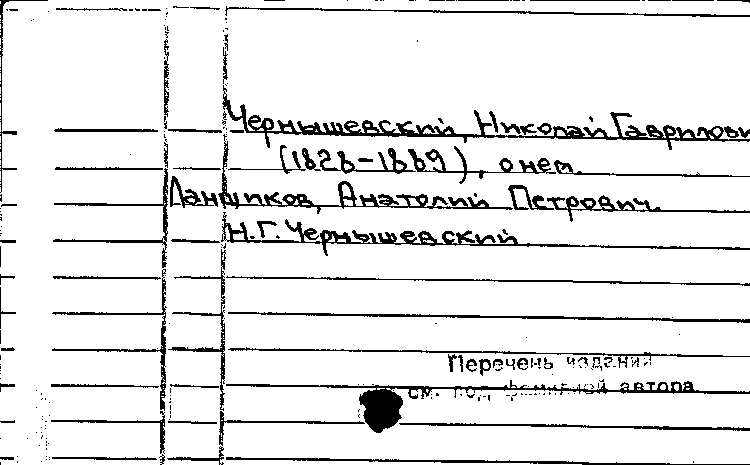 Чернышевский, Николай Гаврилови
(1828-1889), о нем.
Ланщиков, Анатолий Петрович.
Н.Г. Чернышевский.
Перечень изданий
см. под фамилией автора